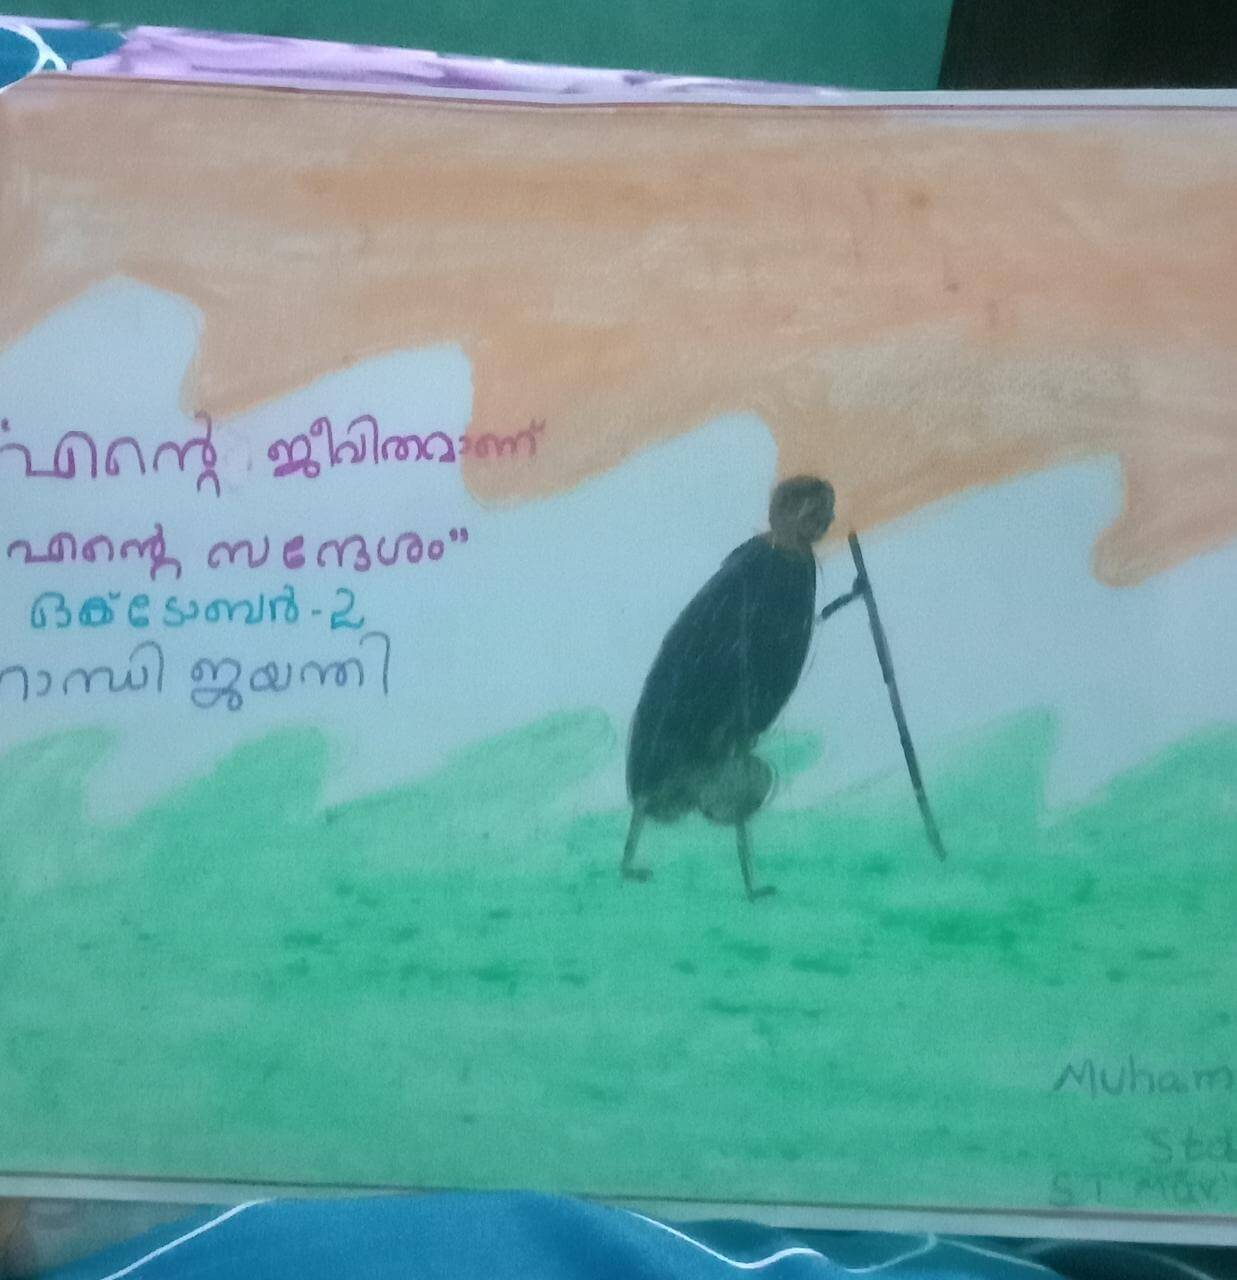 "എന്റെ ജീവിതമാണ്
എന്റെ സന്ദേശം"
ഒക്ടോബർ-2
ഗാന്ധി ജയന്തി
Muham
Std
ST Mar